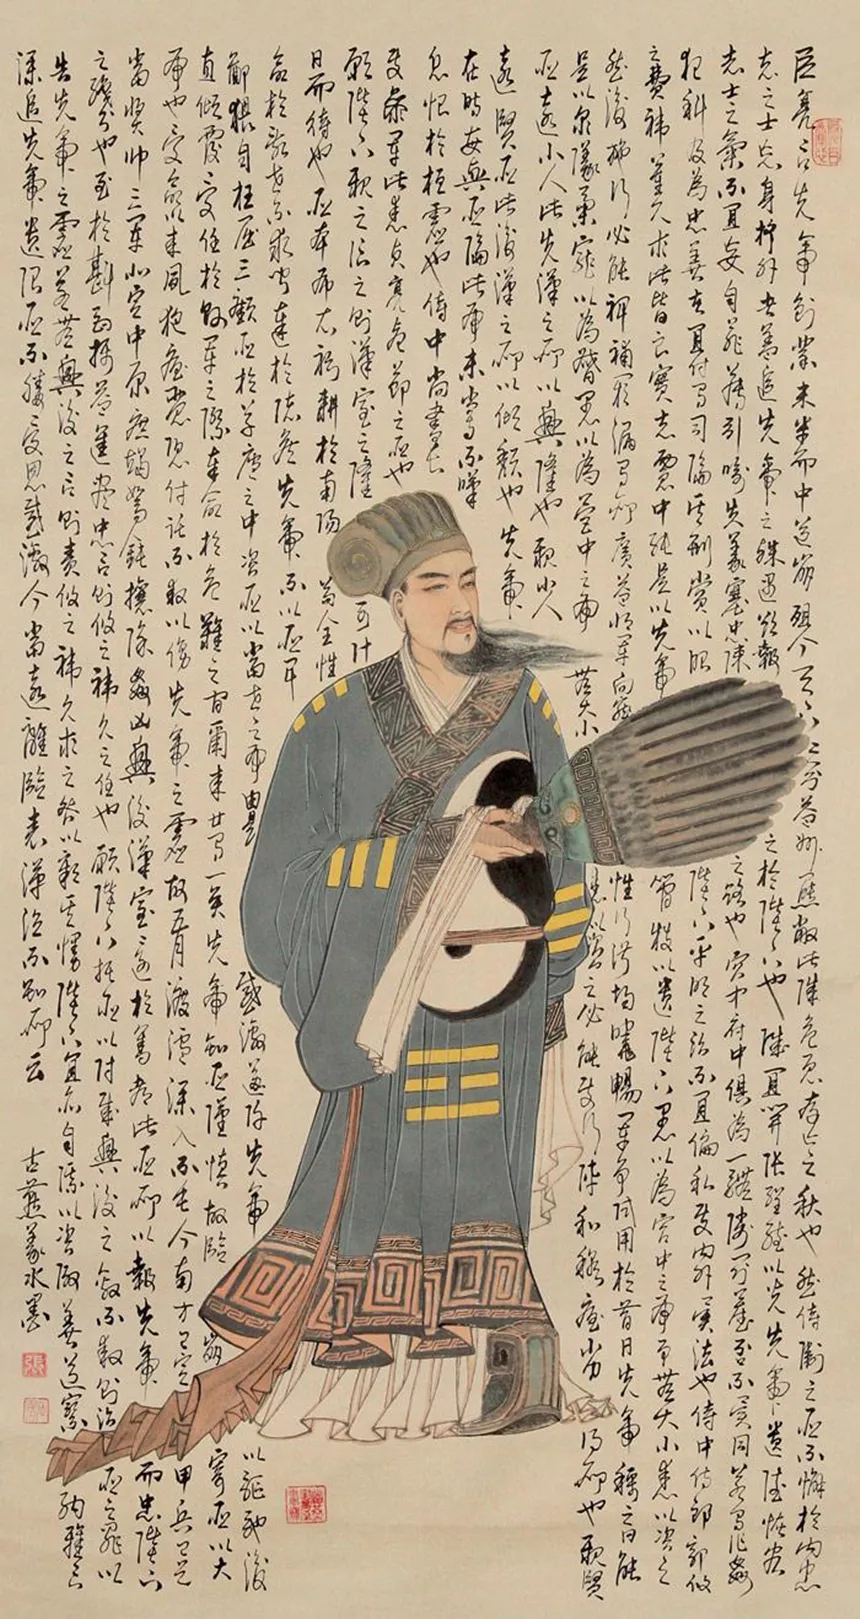 臣亮言先帝創業未半而中道崩殂今天下三分益州疲敝此誠危急存亡之秋也然侍衛之臣不懈於內忠
志之士忘身於外者蓋追先帝之殊遇欲報之於陛下也誠宜開張聖聽以光先帝遺德恢宏
志士之氣不宜妄自菲薄引喻失義塞忠諫之路也宮中府中俱為一體陟罰臧否不宜異同若有作姦
犯科及為忠善者宜付有司論其刑賞以昭陛下平明之治不宜偏私使內外異法也侍中侍郎郭攸
之費禕董允等此皆良實志慮忠純是以先帝簡拔以遺陛下愚以為宮中之事事無大小悉以咨之
然後施行必能裨補闕漏有所廣益將軍向寵性行淑均曉暢軍事試用於昔日先帝稱之曰能
是以眾議舉寵以為督愚以為營中之事無大小悉以咨之必能使行陣和穆優劣得所也親賢
臣遠小人此先漢之所以興隆也親小人
遠賢臣此後漢之所以傾頹也先帝
在時每與臣論此事未嘗不嘆
息恨於桓靈也侍中尚書長
史參軍此悉貞亮死節之臣也
願陛下親之信之則漢室之隆可計
日而待也臣本布衣躬耕於南陽苟全性
命於亂世不求聞達於諸侯先帝不以臣卑
鄙猥自枉屈三顧臣於草廬之中咨臣以當世之事由是感激遂許先帝以驅馳後
直傾覆受任於敗軍之際奉命於危難之間爾來廿有一矣先帝知臣謹慎故臨崩寄臣以大
事也受命以來夙夜憂慮恐付託不效以傷先帝之靈故五月渡瀘深入不毛今南方已定甲兵已足
當獎帥三軍北定中原庶竭駑鈍攘除姦凶興復漢室還於舊都此臣所以報先帝而忠陛下
之職分也至於斟酌損益進盡忠言則攸之禕允之任也願陛下托臣以討賊興復之效不效則治臣之罪以
告先帝之靈若無興復之言則責攸之禕允等之咎以彰其慢陛下宜亦自謀以咨諏善道察納雅言
深追先帝遺詔臣不勝受恩感激今當遠離臨表涕泣不知所云
古燕義水墨